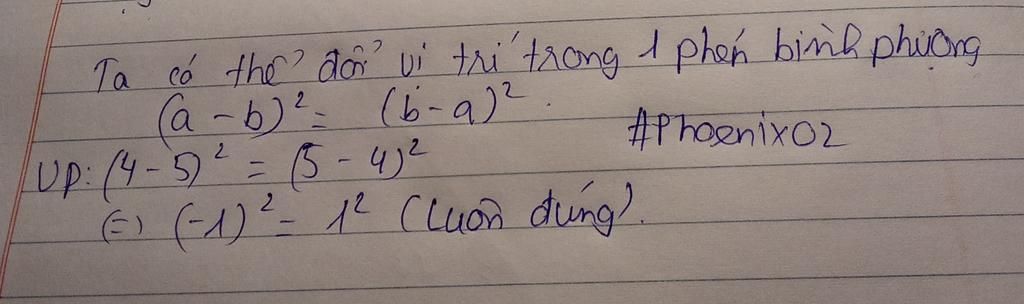 Ta có thể đổi vị trí trong 1 phép bình phương
(a - b)² = (b - a)².
#Phoenix02
VD: (4 - 5)² = (5 - 4)²
(=) (-1)² = 1² (Luôn đúng).